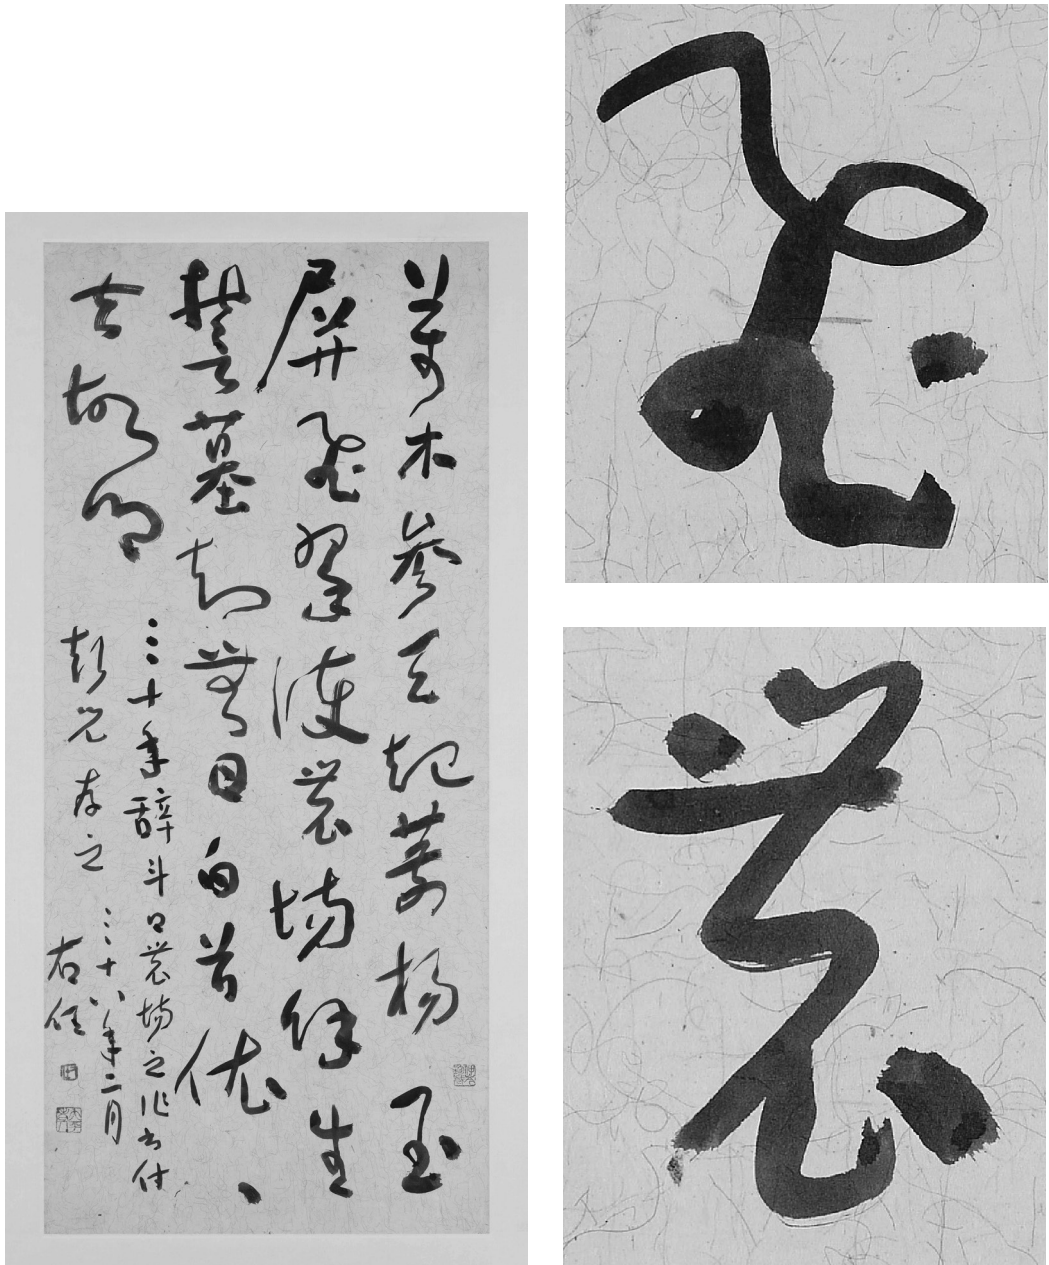 萬木參天起楊玉
屏飛翠護農場餘生
誓墓知無日白首依、
去故鄉
三十年辭斗口農場之作書付
彭兄存之
三十八年二月
右任
飛
農